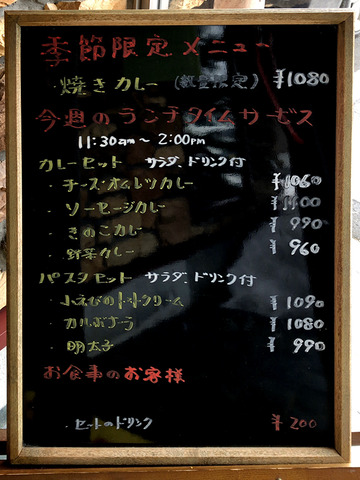 季節限定メニュー
・焼きカレー (数量限定) ¥1080
今週のランチタイムサービス
11:30am〜2:00pm
カレーセット サラダ、ドリンク付
・チーズオムレツカレー ¥1060
・ソーセージカレー ¥1100
・きのこカレー ¥990
・野菜カレー ¥960
パスタセット サラダ、ドリンク付
・小えびのトマトクリーム ¥1090
・カルボナーラ ¥1080
・明太子 ¥990
お食事のお客様
・セットのドリンク ¥200